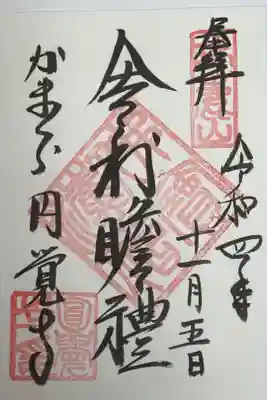 奉拝
令和四年
十一月五日
舎利瞻禮
かまくら円覚寺